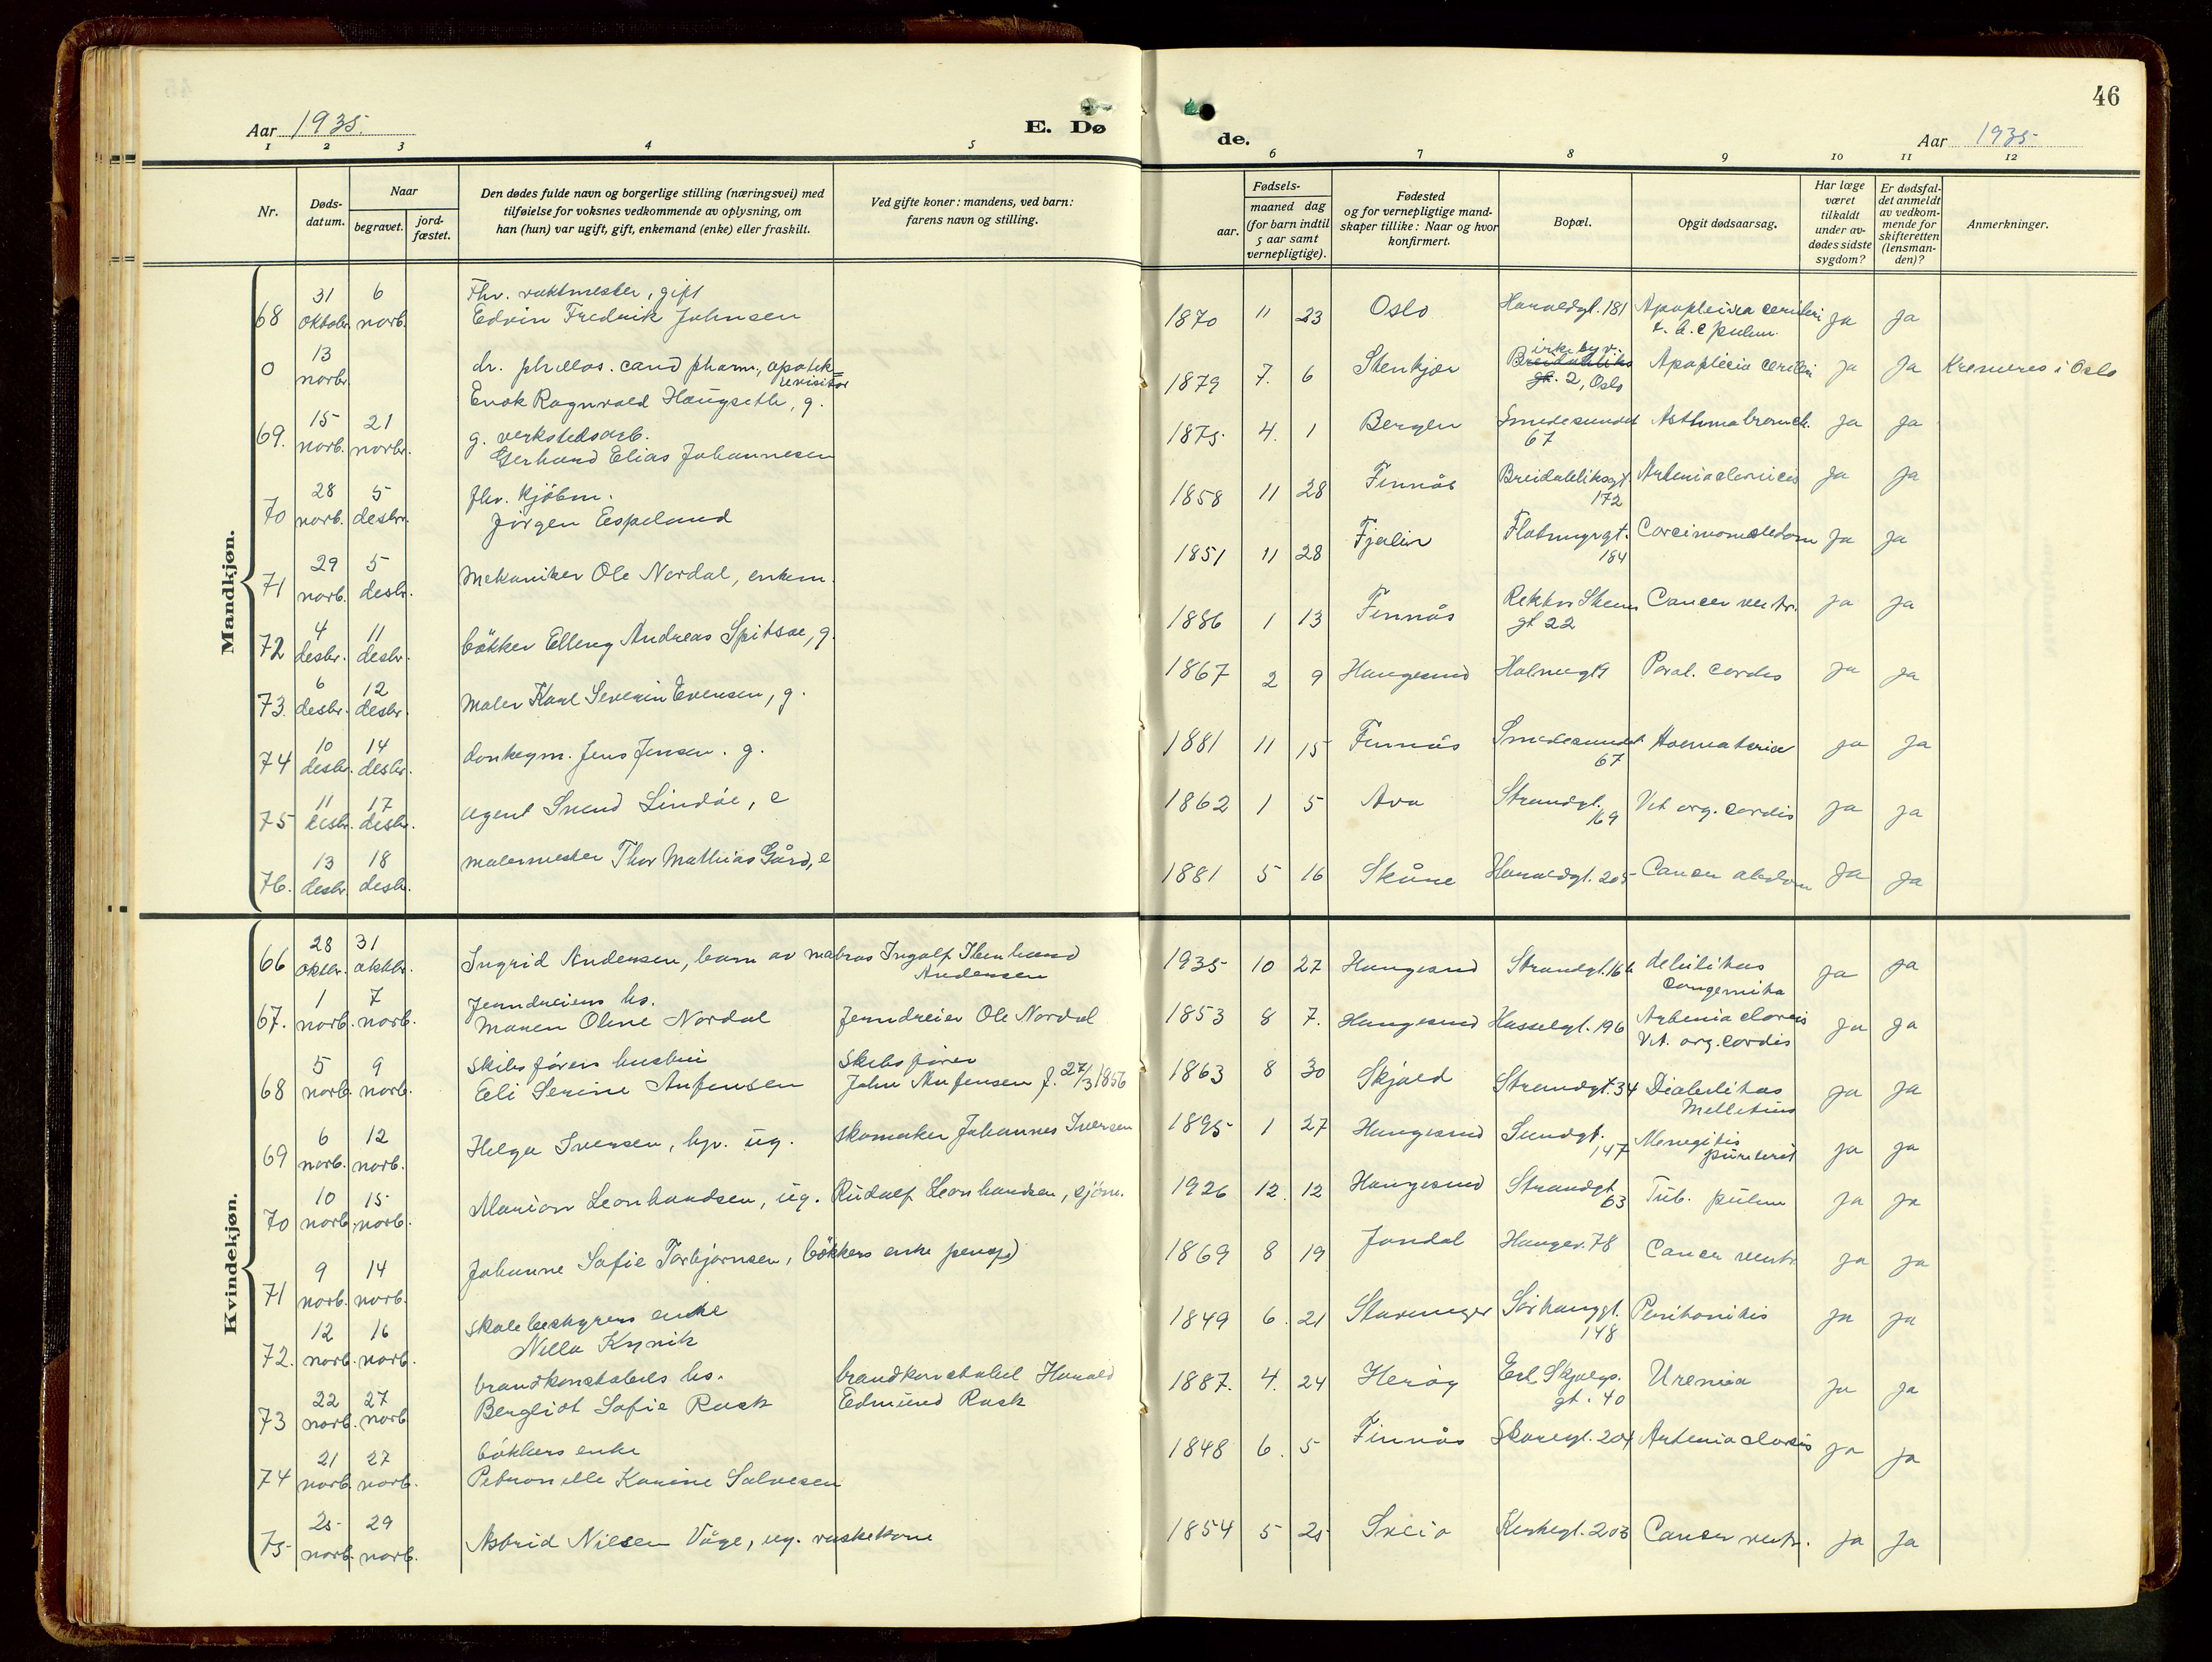 46
Aar 1935.
E. Døde.
Aar 1935
1 2 3 4 5 6 7 8 9 10 11 12
Nr.
Døds-
datum.
Naar
begravet.
jord-
fæstet.
Den dødes fulde navn og borgerlige stilling (næringsvei) med
tilføielse for voksnes vedkommende av oplysning, om
han (hun) var ugift, gift, enkemand (enke) eller fraskilt.
Ved gifte koner: mandens, ved barn:
farens navn og stilling.
Fødsels-
aar.
maaned dag
(for barn indtil
5 aar samt
vernepligtige).
Fødested
og for vernepligtige mand-
skaper tillike: Naar og hvor
konfirmert.
Bopæl.
Opgit dødsaarsag.
Har læge
været
tilkaldt
under av-
dødes sidste
sygdom?
Er dødsfal-
det anmeldt
av vedkom-
mende for
skifteretten
(lensman-
den)?
Anmerkninger.
Mandkjøn.
68 31 oktobr. 6 novb. Fhv. vaktmester, gift
Edvin Fredrik Johnsen 1870 11 23 Oslo Haraldgt. 181 Apoplexia cerebri
t. b. c pulm. Ja Ja
0 13 novbr. dr. philos. cand pharm., apotek=
revisitor
Enok Ragnvald Haugseth, g. 1879 7. 6 Stenkjær Breidablik
gt. 2, Oslo Apoplexia cerebri Ja Ja Kremeres i Oslo
69. 15 novb. 21 novbr. g. verkstedsarb.
Gerhard Elias Johannesen 1875 4. 1 Bergen Smedesundet
67 Asthma bronch. Ja Ja
70 28 novb. 5 desbr. fhv. kjøbm.
Jørgen Espeland 1858 11 28 Finnås Breidabliksgt.
172 Ja Ja
71 29 novb. 5 desbr. Mekaniker Ole Nordal, enkem. 1851 11 28 Fjaler Flotmyrgt.
184 Ja Ja
72 4 desbr. 11 desbr. bökker Elling Andreas Spitsøe, g. 1886 1 13 Finnås Rektor Steens
gt 22 Cancer ventr. Ja Ja
73. 6 desbr. 12 desbr. Maler Karl Severin Evensen, g. 1867 2 9 Haugesund Holmegt 9 Paral. cordis Ja Ja
74 10 desbr. 14 desbr. donkeym. Jens Jensen. g. 1881 11 15 Finnås Smedesundet
67 Ja Ja
75 11 desbr. 17 desbr. agent Svend Lindøe, e 1862 1 5 Ava Strandgt.
169 Vit. org. cordis Ja Ja
76. 13 desbr 18 desbr. malermester Thor Mathias Gård, e 1881 5 16 Skåne Haraldgt. 205 Cancer abdom Ja Ja
Kvindekjøn.
66 28 oktbr. 31 oktbr. Ingrid Andersen, barn av matros Ingolf
Andersen 1935 10 27 Haugesund Strandgt. debilitas
congenita Ja Ja
67. 1 novb. 7 novb. Jerndreiers hs.
Maren Oline Nordal Jerndreier Ole Nordal 1853 8 7. Haugesund Hasselgt. 196
Vit. org. cordis Ja Ja
68 5 novb. 9 novb. Skibsförers hustru
Eli Serine Anfinsen Skibsförer
John Anfinsen f. 27/3 1856 1863 8 30 Skjold Strandgt. 34 Diabelitas
Mellitus Ja Ja
69 6 novb. 12 novb. Helga Iversen, hp. ug. skomaker Johannes Iversen 1895 1 27 Haugesund Sundgt.
147 Ja Ja
70 10 novb. 15 novb. Marion Leonhardsen, ug. Rudolf Leonhardsen, sjöm. 1926 12. 12 Haugesund Strandgt
63 Tub. pulm Ja Ja
71 9 novb. 14 novb. Johanne Sofie Torbjørnsen, bökkers enke 1869 8 19 Jondal Haugev. 78 Cancer ventr Ja Ja
72. 12 novb. 16 novb. skolebestyrers enke
Nella Kyvik 1849 6. 21 Stavanger Sørhauggt.
148 Peritonitis Ja Ja
73 22 novb. 27 novb brandkonstabels hs.
Bergliot Sofie Rask brandkonstabel Harald
Edmund Rask 1887. 4. 24 Herøy Erl. Skjalgs.
gt. 40 Uremia Ja Ja
74 21 novb. 27 novb. bökkers enke
Petronelle Karine Salvesen 1848 6. 5 Finnås Skaregt. 204 Ja Ja
75 25 novb. 29 novb. Astrid Nilsen Våge, ug. vaskekone 1854 5 25 Sveio Kirkegt. 203 Cancer ventr. Ja Ja